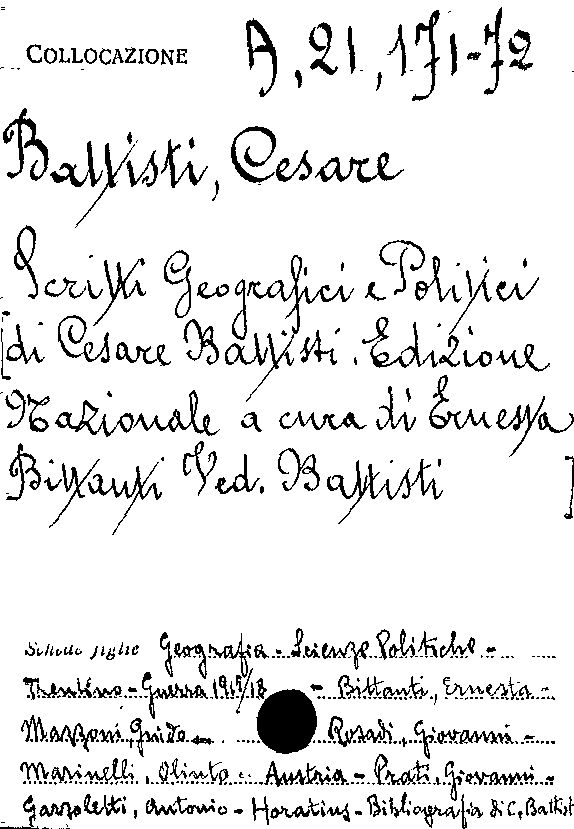 COLLOCAZIONE A, 21, 171-72
Battisti, Cesare
Scritti Geografici e Politici
[di Cesare Battisti. Edizione
Nazionale a cura di Ernesta
Bittanti Ved. Battisti ]
Schede figlie Geografia - Scienze Politiche -
Trentino - Guerra 1915/18 - Bittanti, Ernesta -
Mazzoni, Guido - Rosadi, Giovanni -
Marinelli, Olinto - Austria - Prati, Giovanni -
Garzoletti, Antonio - Horatius - Bibliografia di C. Battist